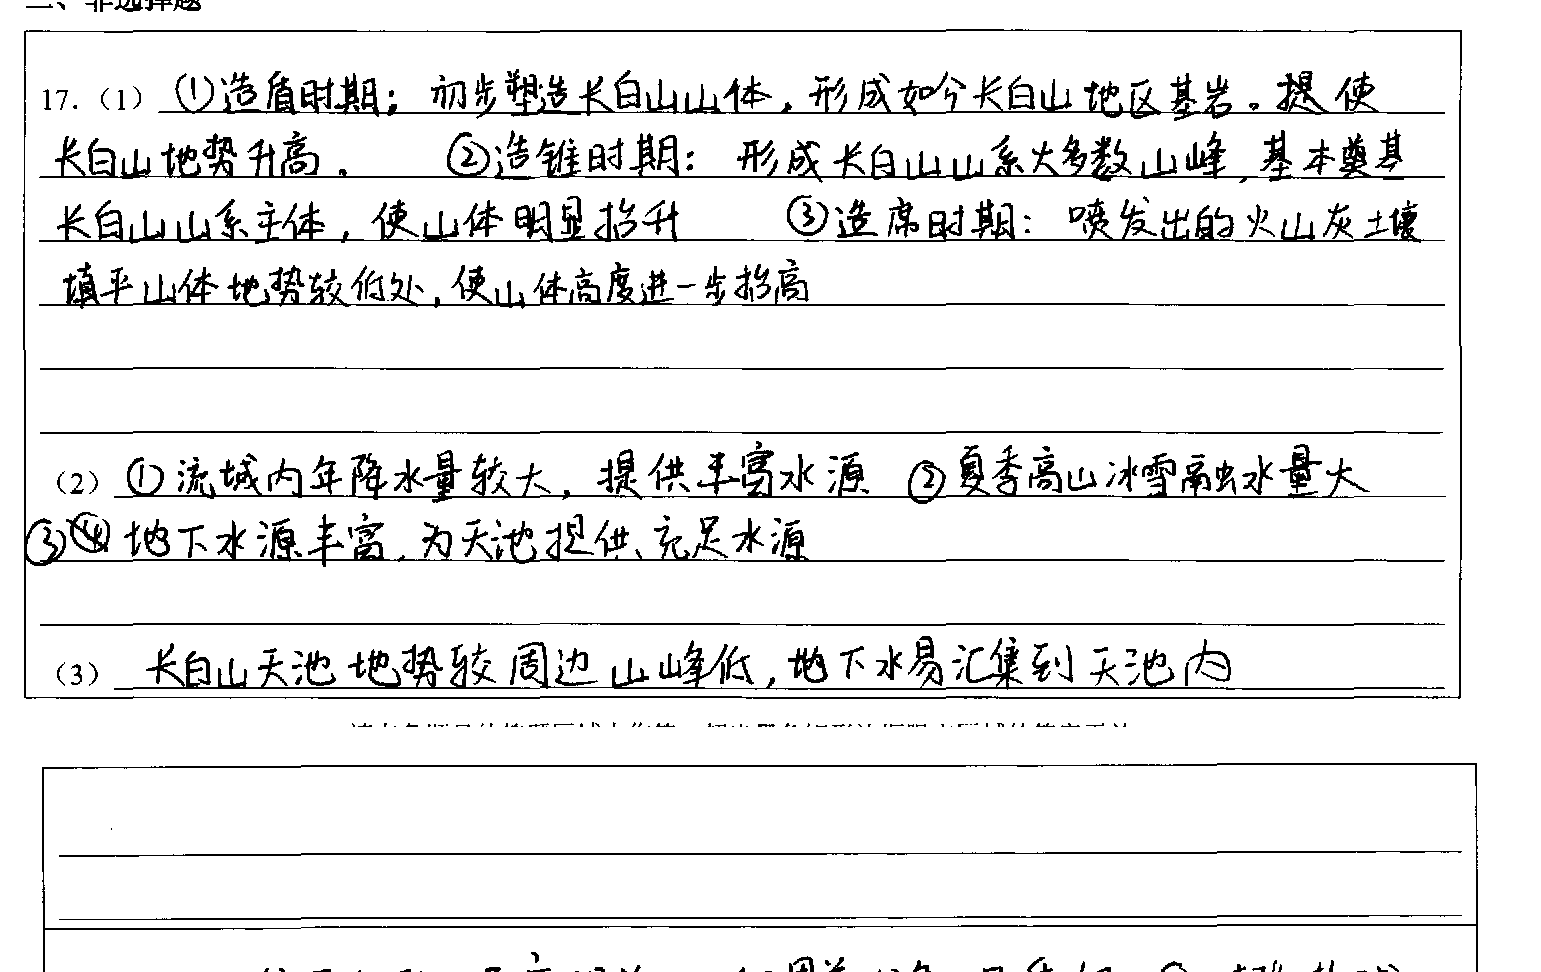 二、非选择题
17.（1）①造盾时期；初步塑造长白山山体，形成如今长白山地区基岩。提使
长白山地势升高． ②造锥时期：形成长白山山系大多数山峰，基本奠基
长白山山系主体，使山体明显抬升 ③造席时期：喷发出的火山灰土壤
填平山体地势较低处，使山体高度进一步抬高
（2）①流域内年降水量较大，提供丰富水源 ②夏季高山冰雪融水量大
③④地下水源丰富，为天池提供充足水源
（3）长白山天池地势较周边山峰低，地下水易汇集到天池内